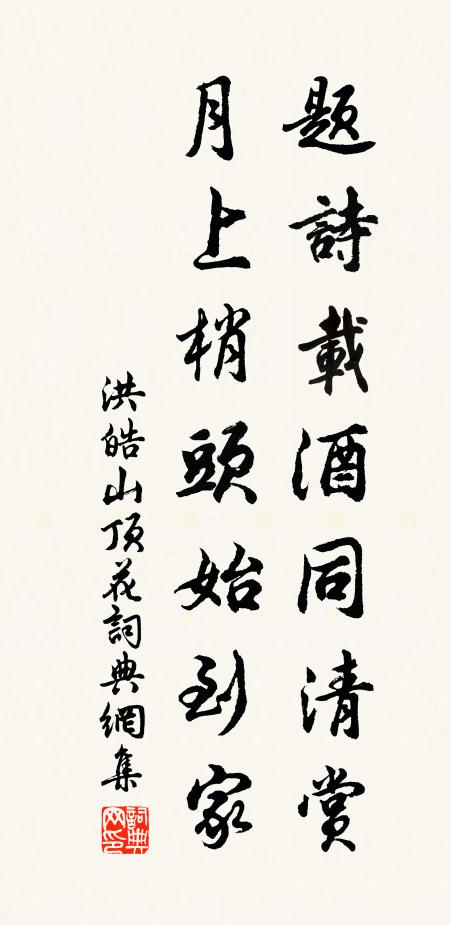 題詩載酒同清賞
月上梢頭始到家
洪皓山頂花詞典網集
詞典网印